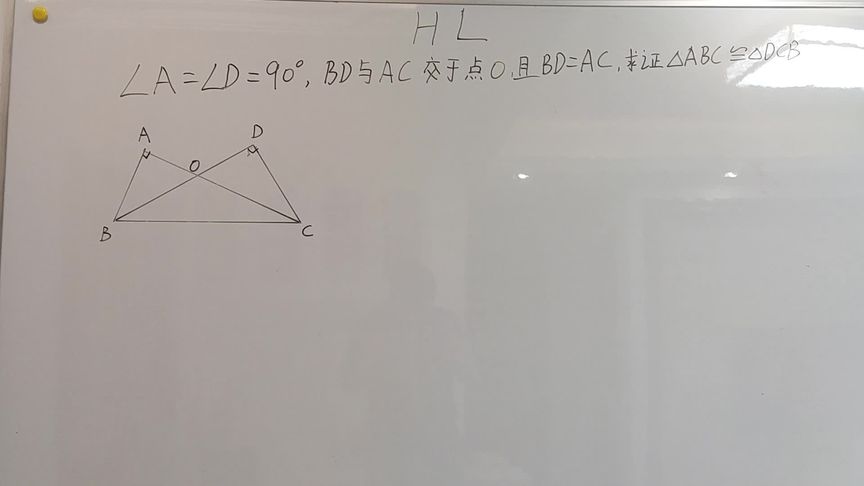 HL
∠A=∠D=90°, BD与AC交于点O,且BD=AC,求证△ABC≌△DCB
A
D
O
B
C